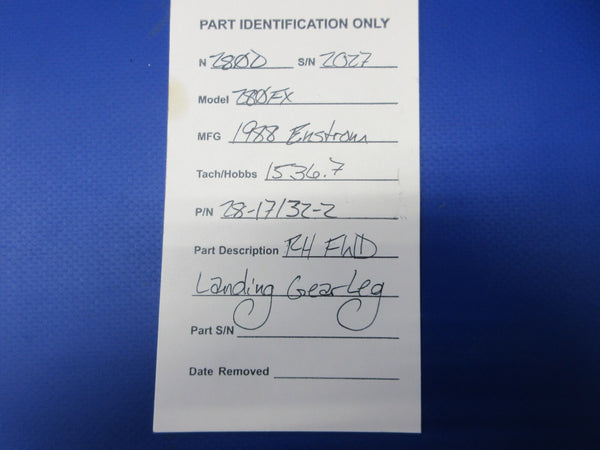 PART IDENTIFICATION ONLY
N 280D S/N 2027
Model 280FX
MFG 1988 Enstrom
Tach/Hobbs 1536.7
P/N 28-17132-2
Part Description RH FWD
Landing Gear Leg
Part S/N
Date Removed